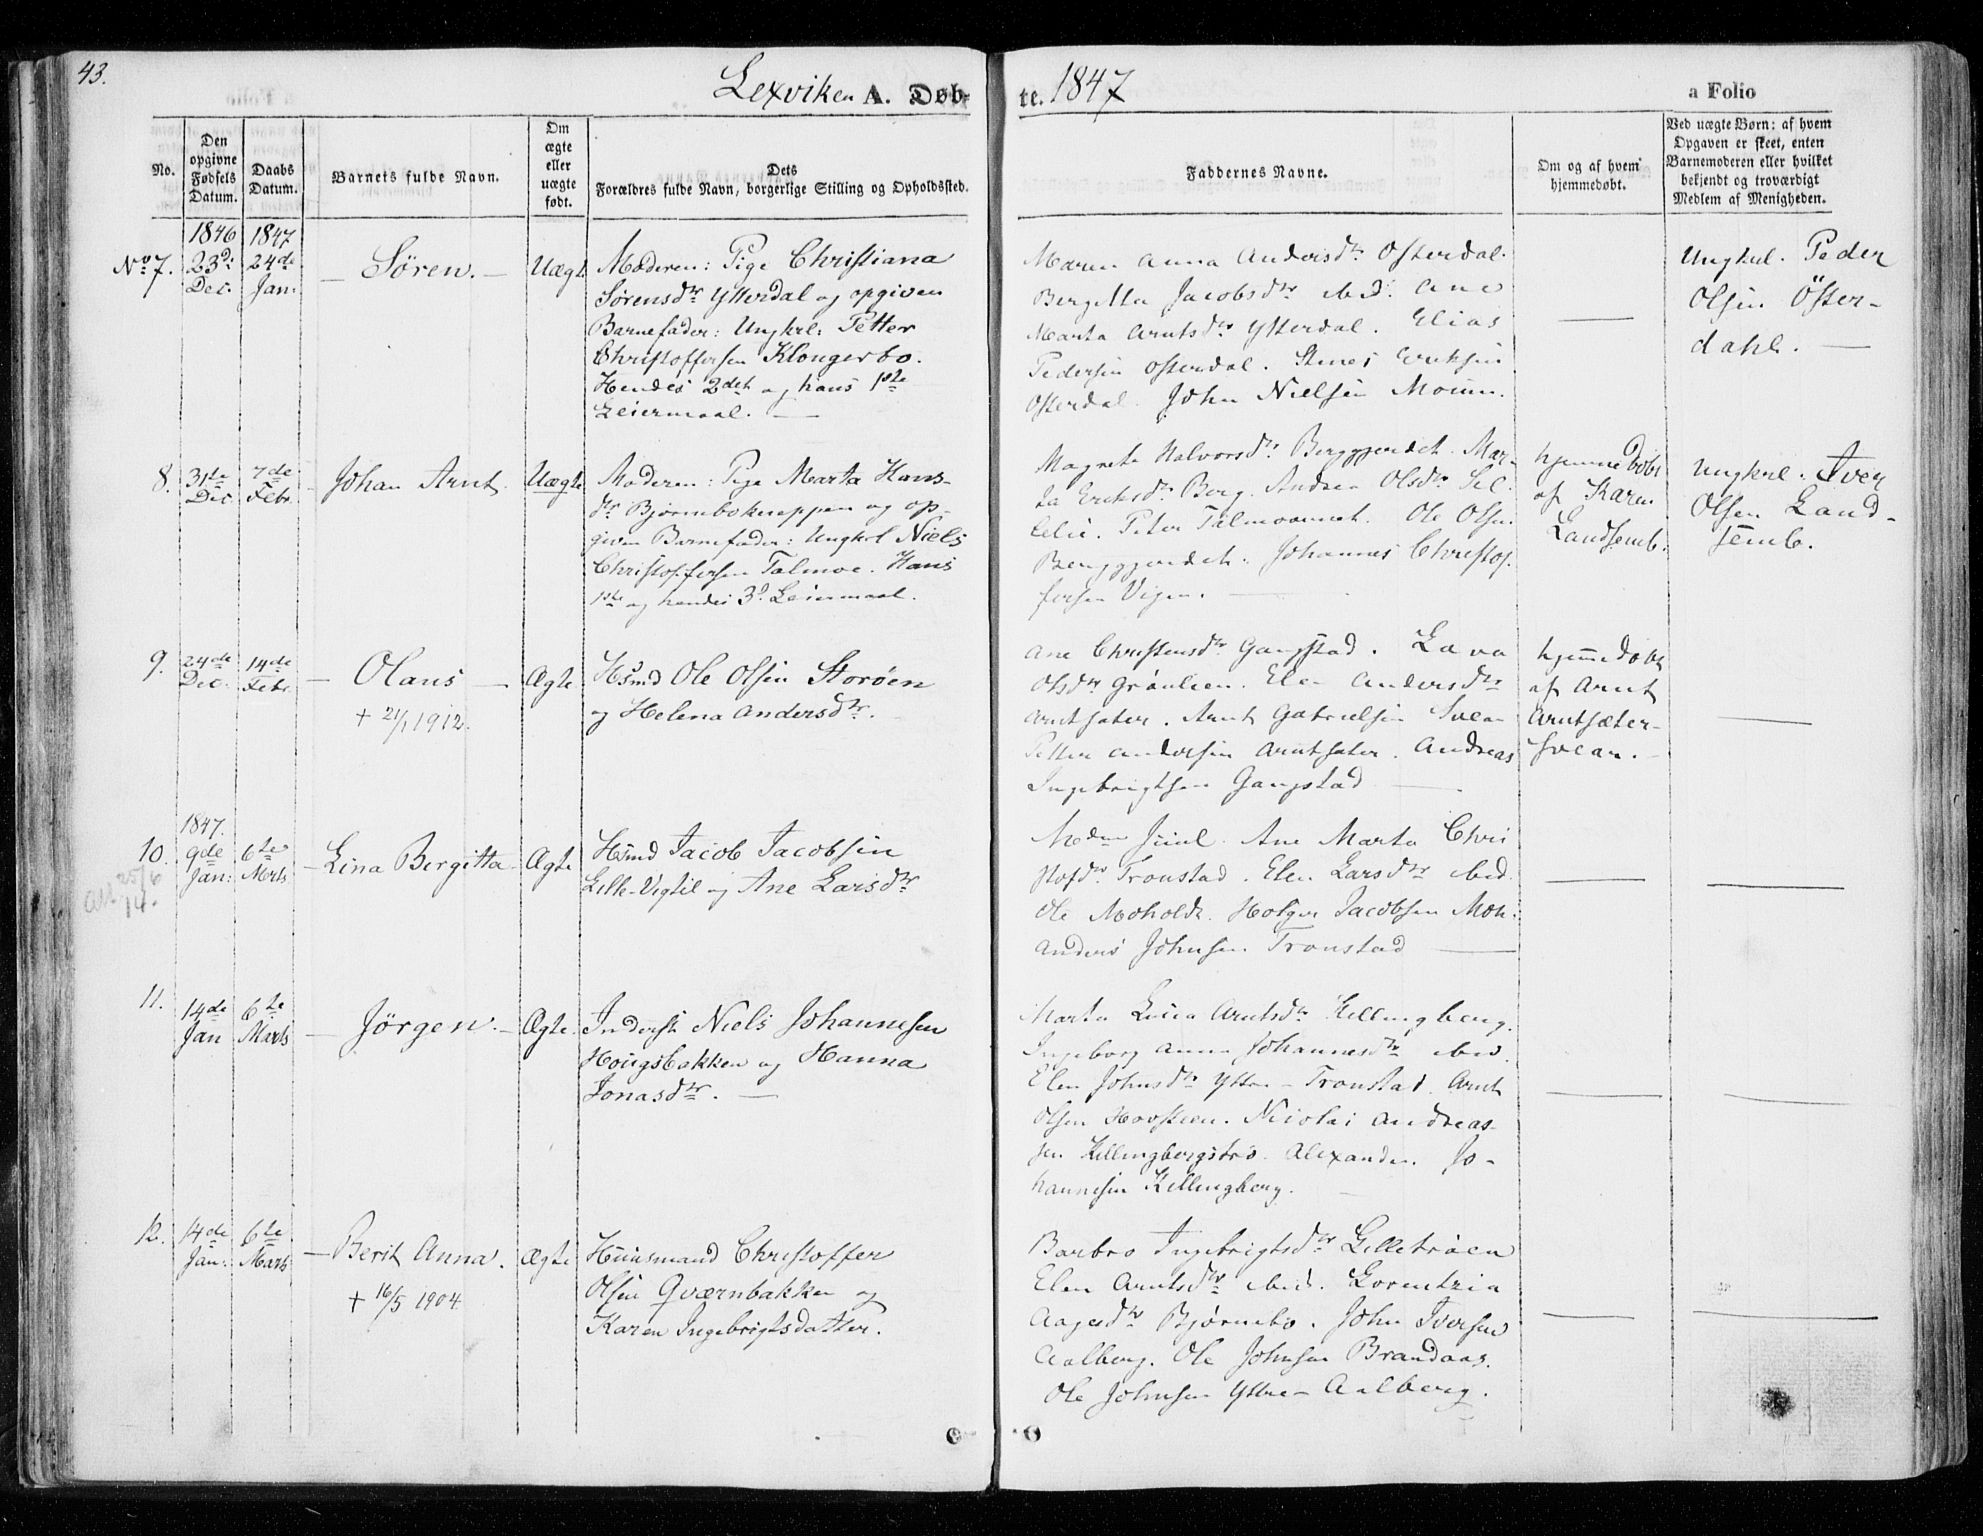 43.
Lexviken A. Døb-
te. 1847
a Folio
No.
Den opgivne Fødsels Datum.
Daabs Datum.
Barnets fulde Navn.
Om ægte eller uægte født.
Dets Forældres fulde Navn, borgerlige Stilling og Opholdssted.
Faddernes Navne.
Om og af hvem hjemmedøbt.
Ved uægte Børn: af hvem Opgaven er skeet, enten Barnemoderen eller hvilket bekjendt og troværdigt Medlem af Menigheden.
No 7.
1846
23d Dec.
1847
24de Jan:
Søren.
Uægt.
Moderen: Pige Christiana
Sørensdtr Ytterdal og opgiven
Barnefader: Ungkrl: Petter
Christoffersen Klongerbo.
Hendes 2det og hans 1ste
Leiermaal.
Maren Anna Andersdtr Osterdal.
Bergitta Jacobsdtr ibid. Ane
Marta Arntsdtr Ytterdal. Elias
Pedersen Osterdal. Erichsen
Osterdal. John Nielsen
Ungkrl. Peder
Olsen Öster-
dahl.
8.
31te Dec.
7de Febr.
Johan Arnt.
Uægte
Moderen: Pige Marta Hans-
dtr Bjørnboknappen og op-
given Barnefader: Ungkrl Niels
Christoffersen Talmoe. Hans
1ste og hendes 3d Leiermaal.
Magreta Halvorsdtr Berggjerdet. Mar-
ta Eriksdtr Berg. Olsdtr Sel-
Peter Talmoennet. Ole Olsen
Berggjerdet. Johannes Christof-
fersen Vigen.
hjemmedøbt
af Karen
Landsemb.
Ungkrl. Iver
Olsen Land-
semb.
9.
24de Dec.
14de Febr.
Olaus
+ 21/1 1912.
Ægte
Hsmd Ole Olsen Storøen
og Helena Andersdtr.
Ane Christensdtr Gangstad. Lava
Olsdtr Grönlien. Elen Andersdtr
Arntsater. Arnt Gabrielsen Svean
Petter Andersen Arntsater. Andreas
Ingebrigtsen Gangstad
hjemmedøbt
af Arnt
Arntsæter-
Svean.
10.
1847.
9de Jan:
6te Marts
25/6
14.
Lina Bergitta
Ægte
Hsmd Jacob Jacobsen
Lille-Vigtil og Ane Larsdtr
Juul. Ane Marta Chri
stofdtr Tronstad. Elen Larsdtr ibid.
Ole Moholdt. Holger Jacobsen Moh:
Anders Johnsen Tronstad
11.
14de Jan
6te Marts
Jörgen.
Ægte.
Inderst Niels Johannesen
Hougsbakken og Hanna
Jonasdtr.
Marta Lucia Arntsdtr Killingberg.
Ingeborg Anna Johannesdtr ibid.
Elen Johnsdtr Ytter-Tronstad. Arnt
Olsen Hovsteen. Nicolai Andreas-
sen Killingbergströ. Alexander Jo-
hannesen Killingberg.
12.
14de Jan:
6te Marts
Berit Anna.
+ 16/5 1904
Ægte
Huusmand Christoffer
Olsen Qværnbakken og
Karen Ingebrigtsdatter.
Barbro Ingebrigtsdtr Lilletröen
Elen Arntsdtr ibid. Lorentzia
Aagesdtr Bjørnebo. John Iversen
Aalberg. Ole Johnsen Brandaas.
Ole Johnsen Ytter-Aalberg.